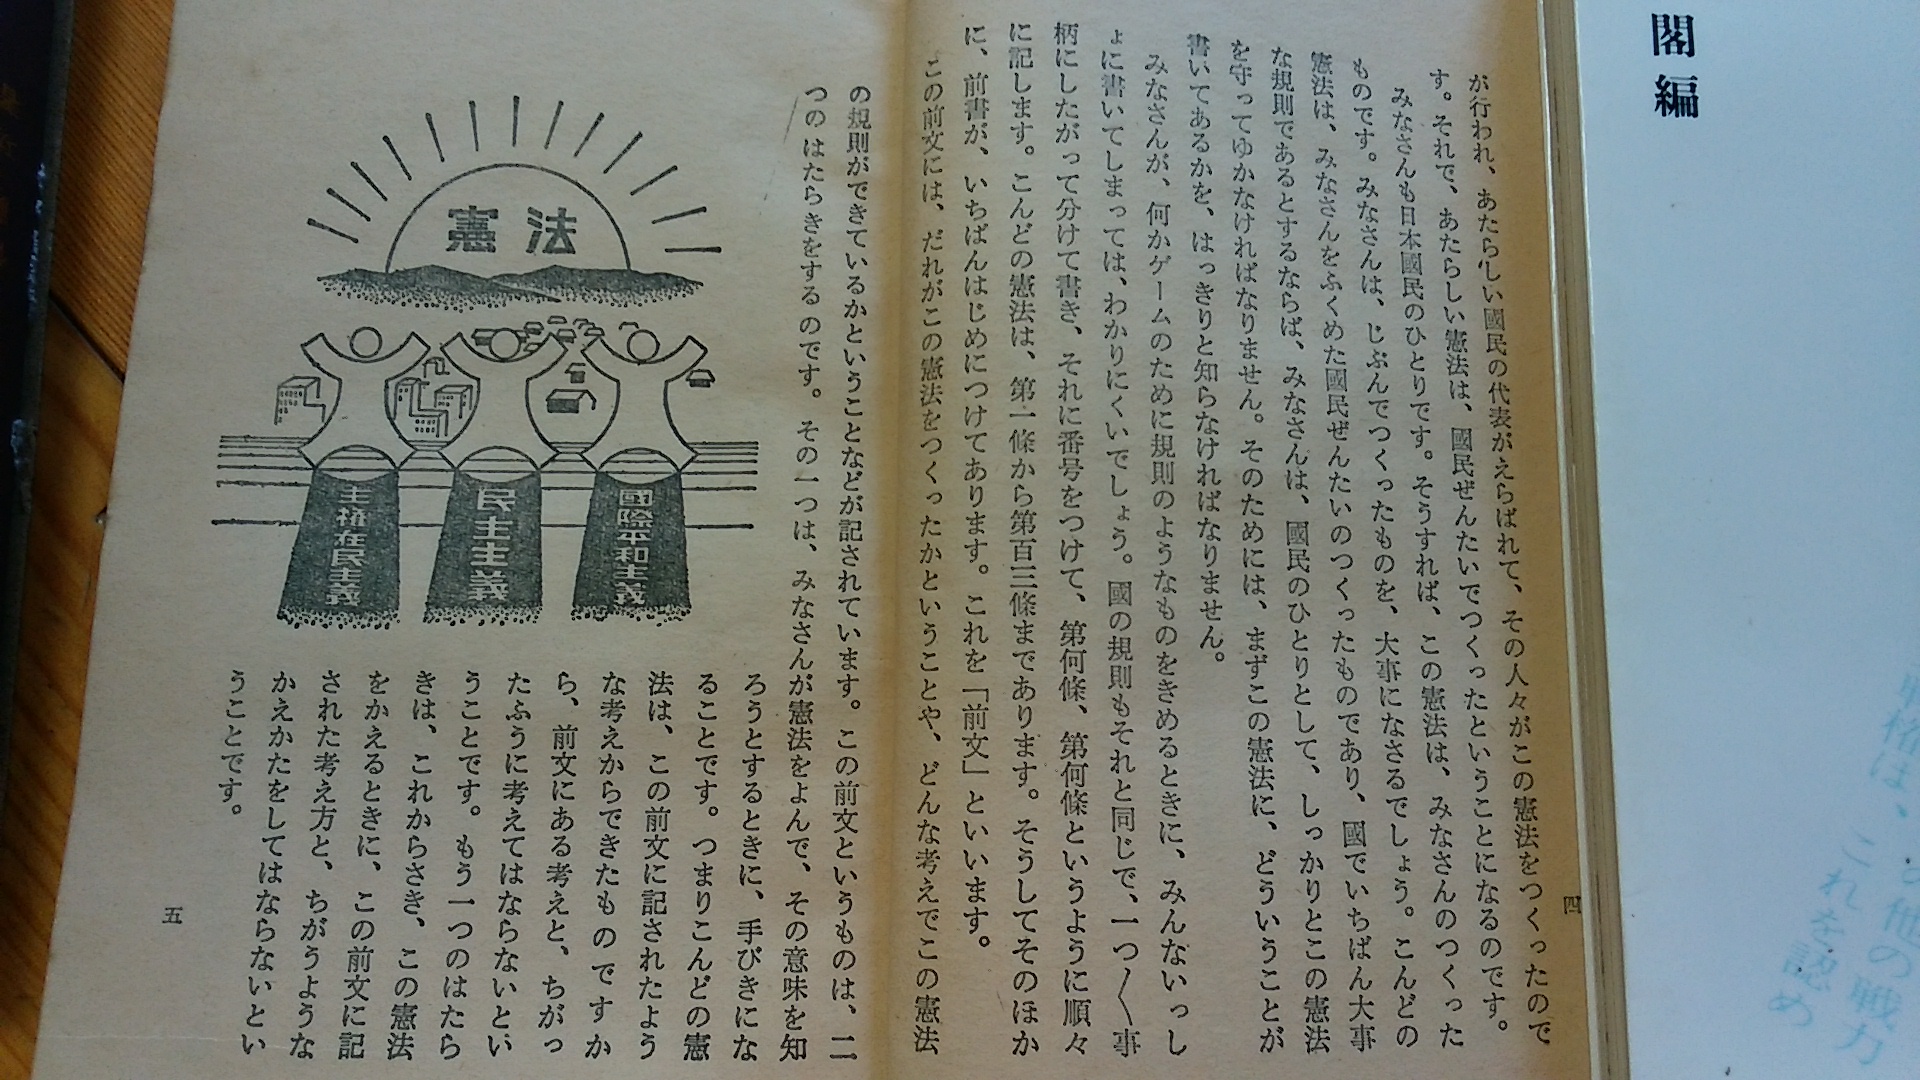 閣編
が行われ、あたらしい國民の代表がえらばれて、その人々がこの憲法をつくったので
す。それで、あたらしい憲法は、國民ぜんたいでつくったということになるのです。
みなさんも日本國民のひとりです。そうすれば、この憲法は、みなさんのつくった
ものです。みなさんは、じぶんでつくったものを、大事になさるでしょう。こんどの
憲法は、みなさんをふくめた國民ぜんたいのつくったものであり、國でいちばん大事
な規則であるとするならば、みなさんは、國民のひとりとして、しっかりとこの憲法
を守ってゆかなければなりません。そのためには、まずこの憲法に、どういうことが
書いてあるかを、はっきりと知らなければなりません。
みなさんが、何かゲームのために規則のようなものをきめるときに、みんないっし
ょに書いてしまっては、わかりにくいでしょう。國の規則もそれと同じで、一つ〱事
柄にしたがって分けて書き、それに番号をつけて、第何條、第何條というように順々
に記します。こんどの憲法は、第一條から第百三條まであります。そうしてそのほか
に、前書が、いちばんはじめにつけてあります。これを「前文」といいます。
この前文には、だれがこの憲法をつくったかということや、どんな考えでこの憲法
四
の規則ができているかということなどが記されています。この前文というものは、二
つのはたらきをするのです。その一つは、みなさんが憲法をよんで、その意味を知
ろうとするときに、手びきにな
ることです。つまりこんどの憲
法は、この前文に記されたよう
な考えからできたものですか
ら、前文にある考えと、ちがっ
たふうに考えてはならないとい
うことです。もう一つのはたら
きは、これからさき、この憲法
をかえるときに、この前文に記
された考え方と、ちがうような
かえかたをしてはならないとい
うことです。
憲法
國際平和主義
民主主義
主権在民主義
五
の他の戦力
これを認め